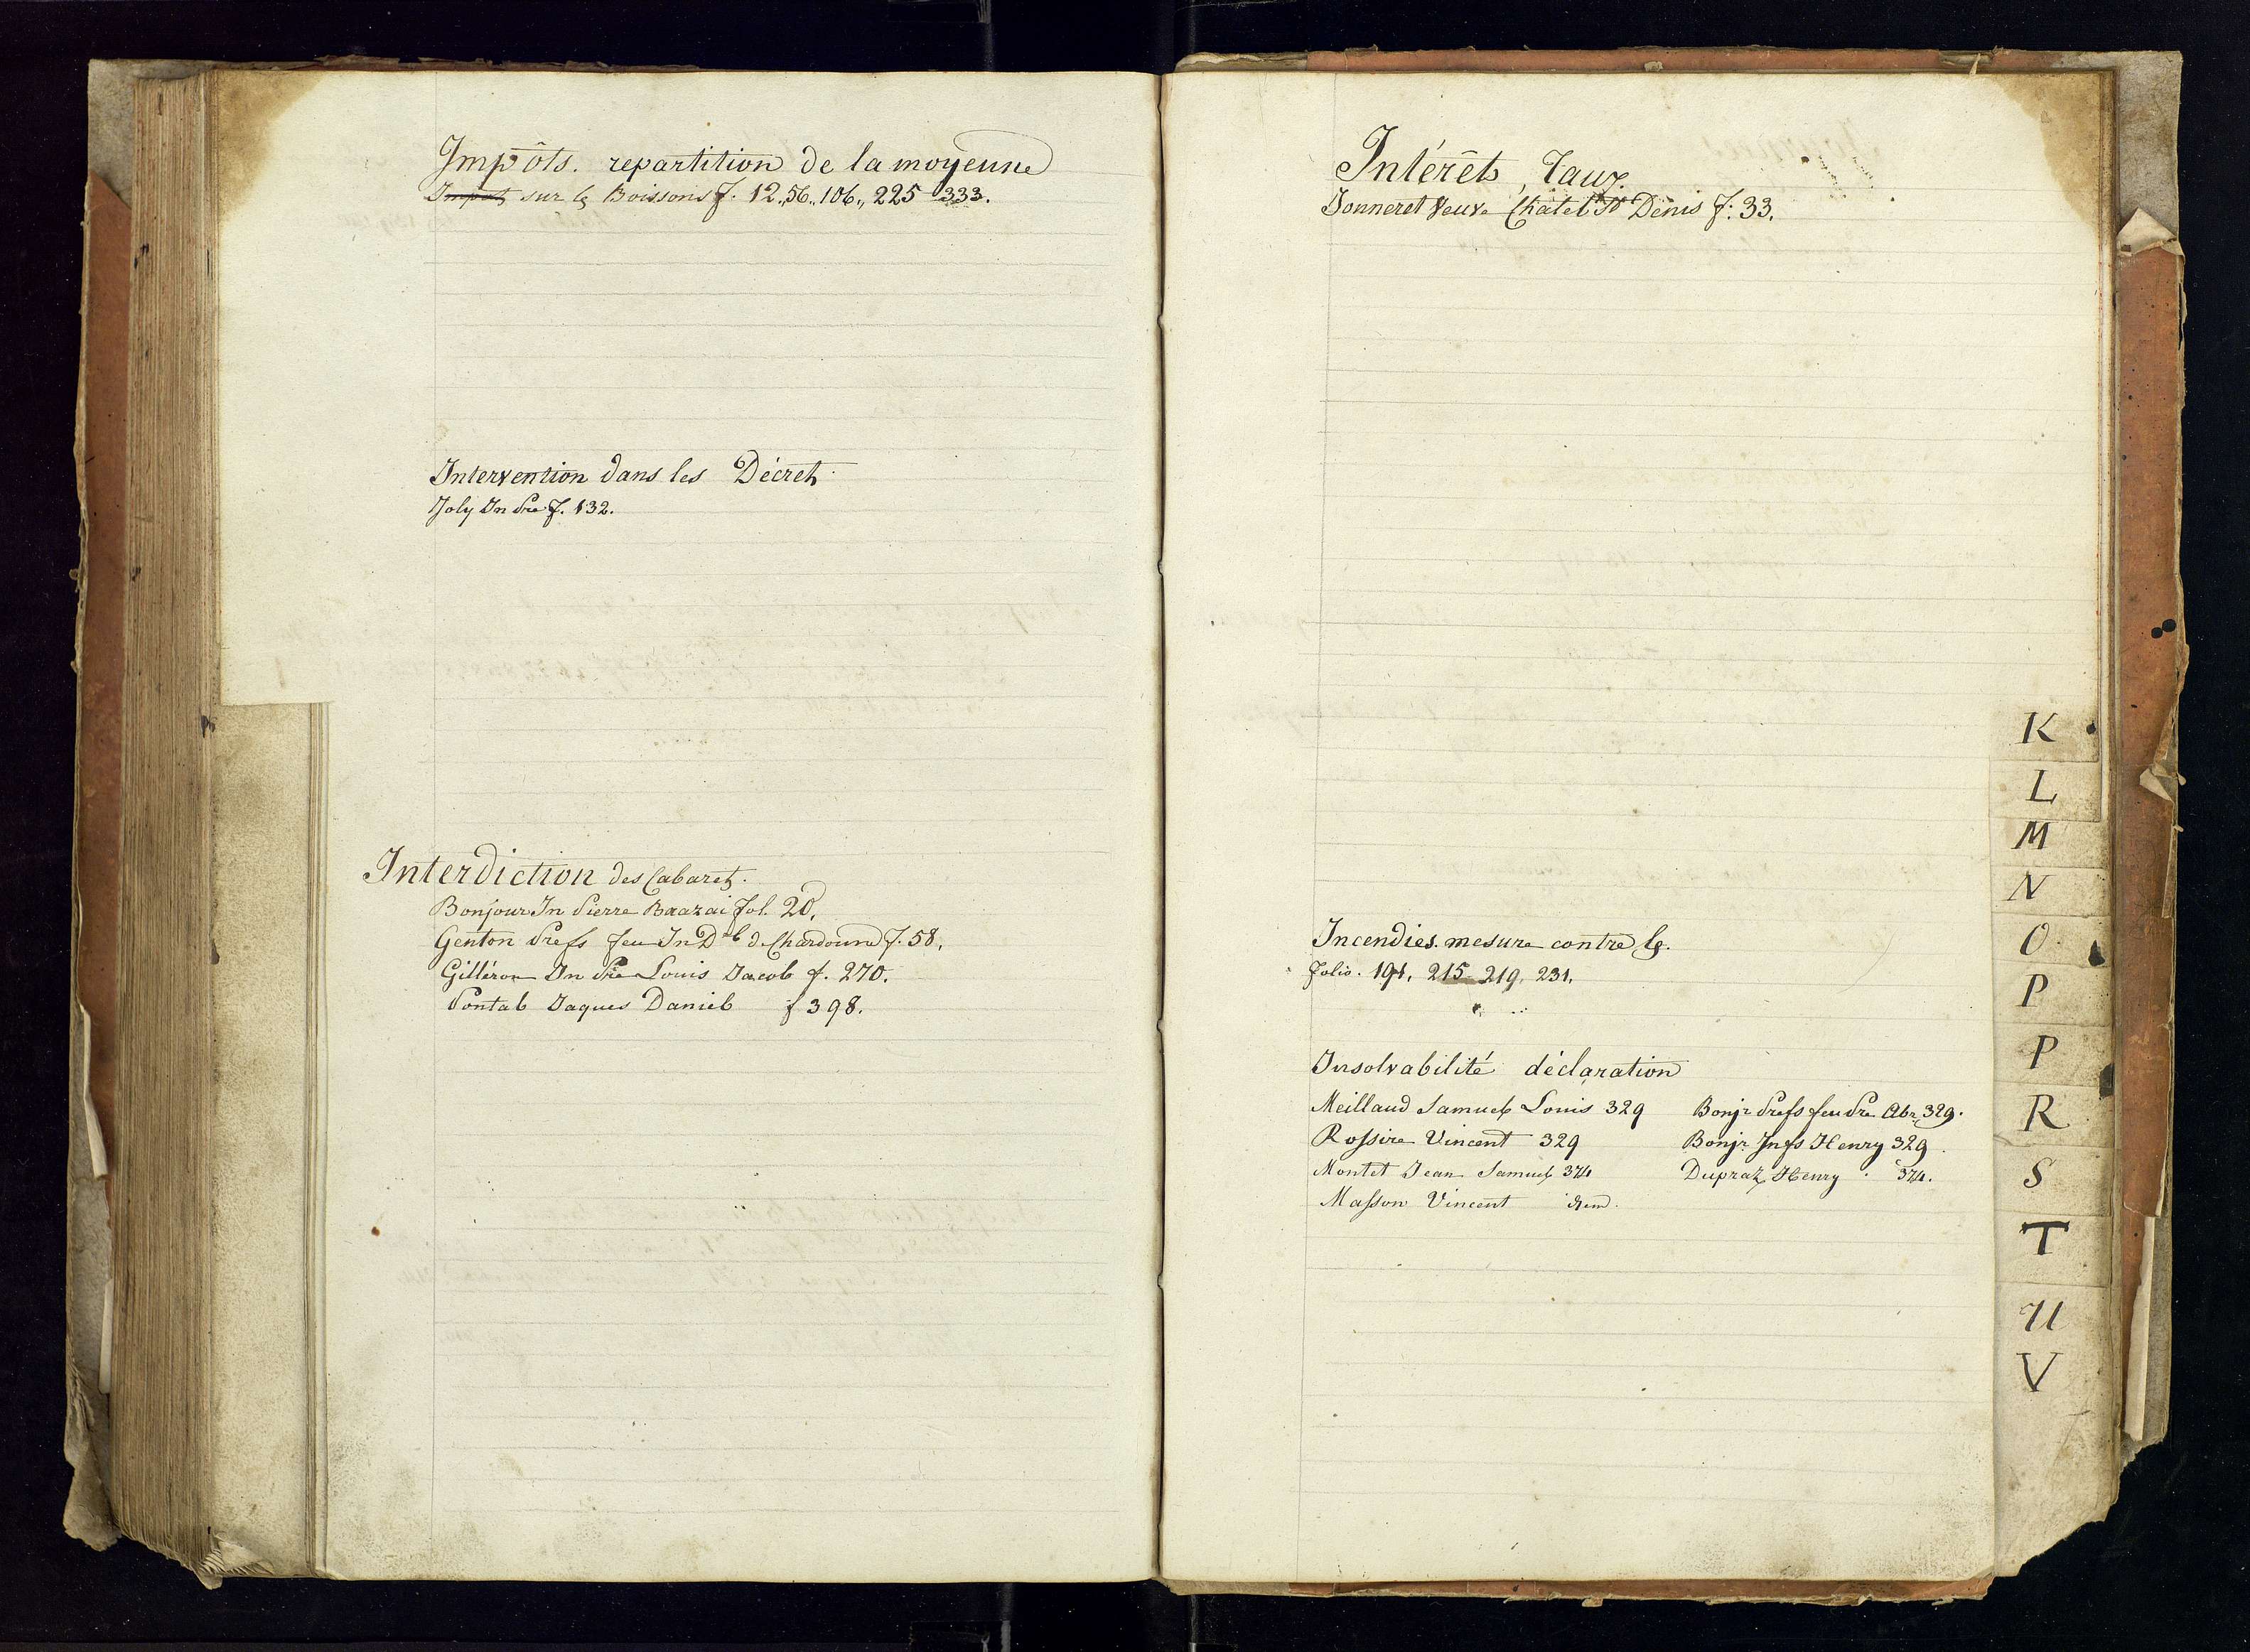 Impôts. repartition de la moyenne
Impot sur les Boissons f. 12., 56., 106., 225 333.
Intervention dans les Décrets.
Joly Jn Pre f. 132.
Interdiction des Cabarets.
Bonjour Jn Pierre fol. 20,
Genton Prefs feu Jn Dl de Chardonne f. 58,
Gilléron Jn Pre Louis Jacob f. 270.
Jaques Daniel f 398.
Intérêts, Taux.
Veuve Chatel St Denis f. 33.
Incendies. mesure contre les.
folio. 191, 215 219, 231.
Insolvabilité déclaration
Meillaud Samuel Louis 329 Bonjr Prefs feu Pre Abr. 329.
Rossire Vincent 329 Bonjr Jn fs Henry 329.
Montet Jean Samuel 374 Dupraz Henry 374.
Masson Vincent idem.
K
L
M
N
O
P
P
R
S
T
U
V